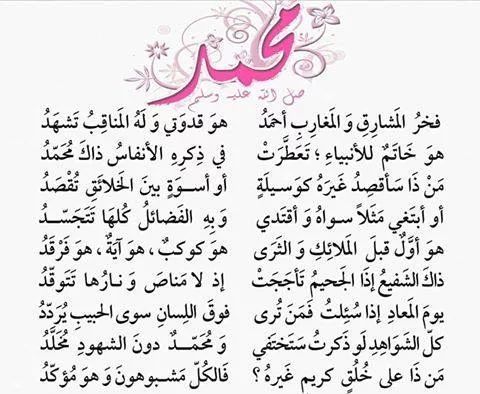 محمد
صلى الله عليه وسلم
فخرُ المَشارِقِ وَ المَغاربِ أحمَدُ هوَ قدوَتي وَ لَهُ المَناقِبُ تَشهَدُ
هوَ خَاتَمٌ للأنبياءِ ؛ تَعطَّرَتْ في ذِكرِهِ الأنفاسُ ذاكَ مُحَمَّدُ
مَنْ ذَا سَأقصِدُ غَيرَهُ كوَسيلَةٍ أو أسـوَةٍ بينَ الخَلائقِ تُقْصَدُ
أو أبتَغي مَثَلاً سواهُ وَ أقتَدي وَ بِهِ الفَضائلُ كُلهَا تَتَجَسّـدُ
هوَ أوَّلٌ قبلَ المَلائِكِ وَ الثَرى هوَ كوكبٌ ، هوَ آيَةٌ ، هوَ فَرْقَدُ
ذاكَ الشَفيعُ إذَا الجَحيمُ تَأجَجَتْ إذ لا مَناصَ وَ نـارُها تَتَوقّدُ
يومَ المَعادِ إذا سُئِلتُ فَمَنْ تُرى فوقَ اللِسانِ سوى الحبيبِ يُرَدَّدُ
كلّ الشَوَاهِدِ لَو ذكَرتُ سَتَختَفي وَ مُحَمّـدٌ دونَ الشهودِ مُخَلَّدُ
مَن ذَا عَلى خُلُقٍ كريمٍ غَيرهُ ؟ فَالكُلّ مَشـبوهونَ وَ هوَ مؤكّدُ